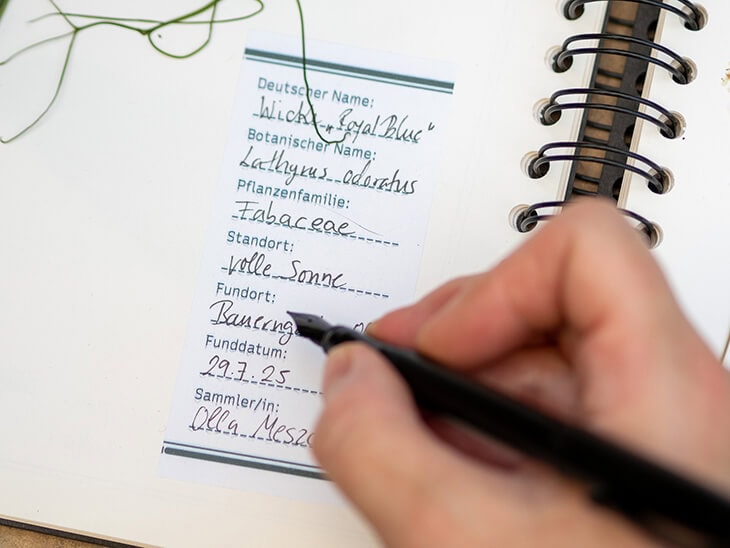 Deutscher Name:
Wicke „Royal Blue"
Botanischer Name:
Lathyrus odoratus
Pflanzenfamilie:
Fabaceae
Standort:
volle Sonne
Fundort:
Funddatum:
29.7.25
Sammler/in:
Olla